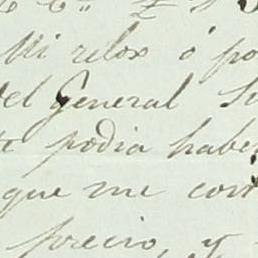 Mi relox ó po
del General Su
podia habe
que me con
precio, y